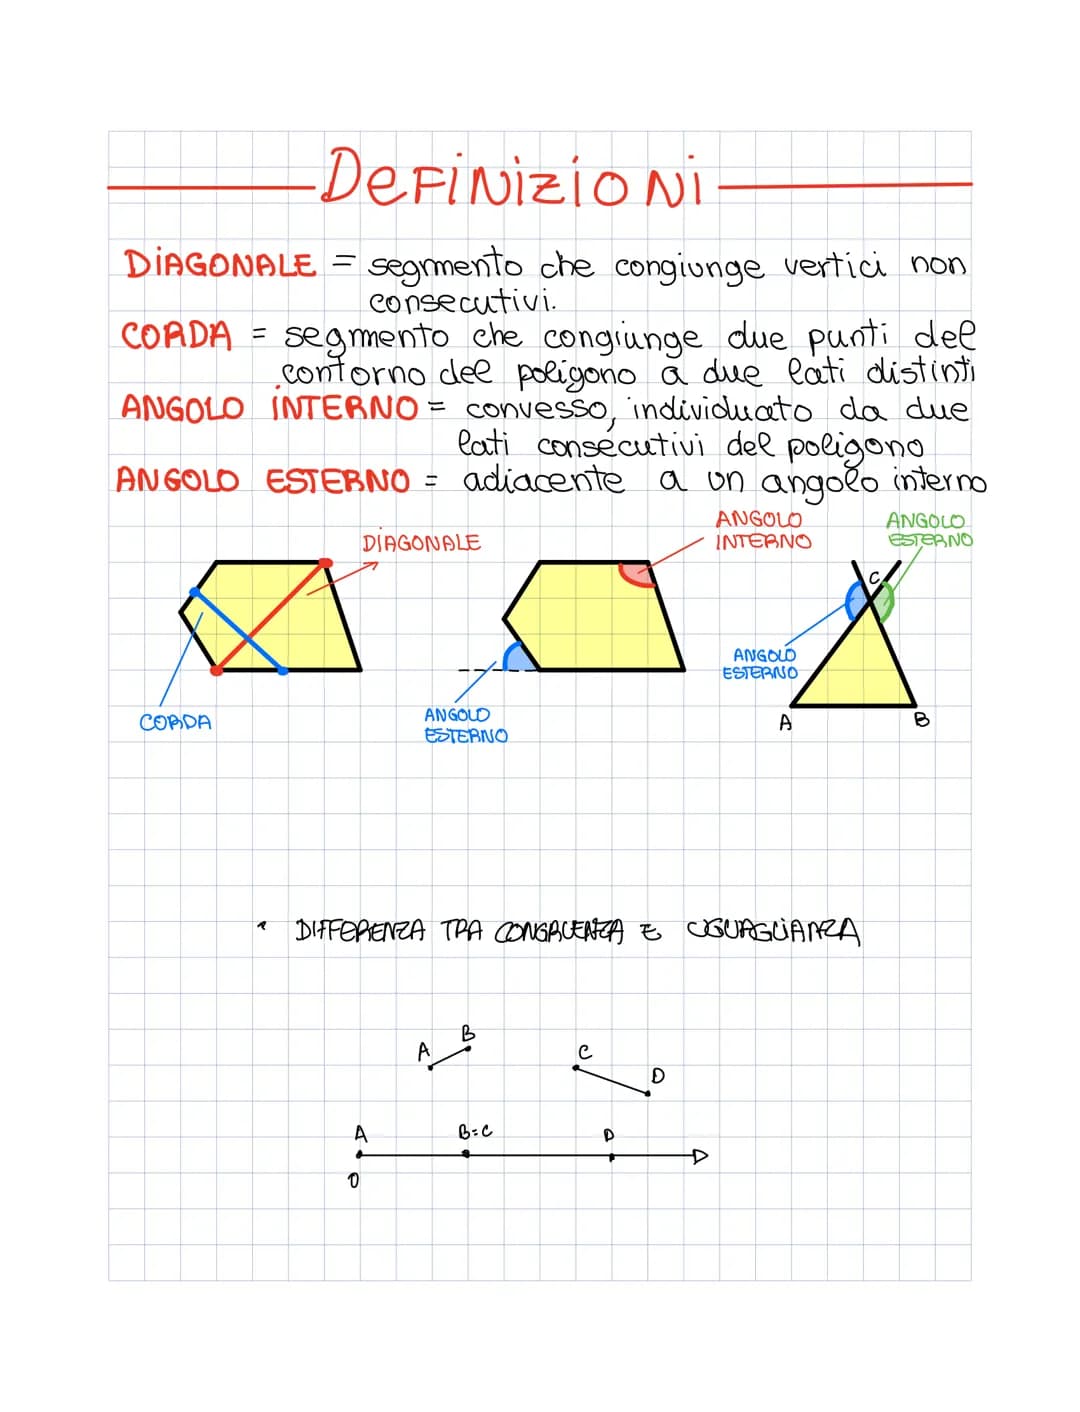 DEFINIZIONI
DIAGONALE = segmento che congiunge vertici non
consecutivi.
CORDA = segmento che congiunge due punti del
contorno del poligono a due lati distinti
ANGOLO INTERNO = convesso, individuato da due
lati consecutivi del poligono
ANGOLO ESTERNO = adiacente a un angolo interno
DIAGONALE
CORDA
ANGOLO
INTERNO
ANGOLO
ESTERNO
ANGOLO
ESTERNO
C
ANGOLO
ESTERNO
A
B
• DIFFERENZA TRA CONGRUENZA E UGUAGLIANZA
A
B
C
D
A
B=C
D
O